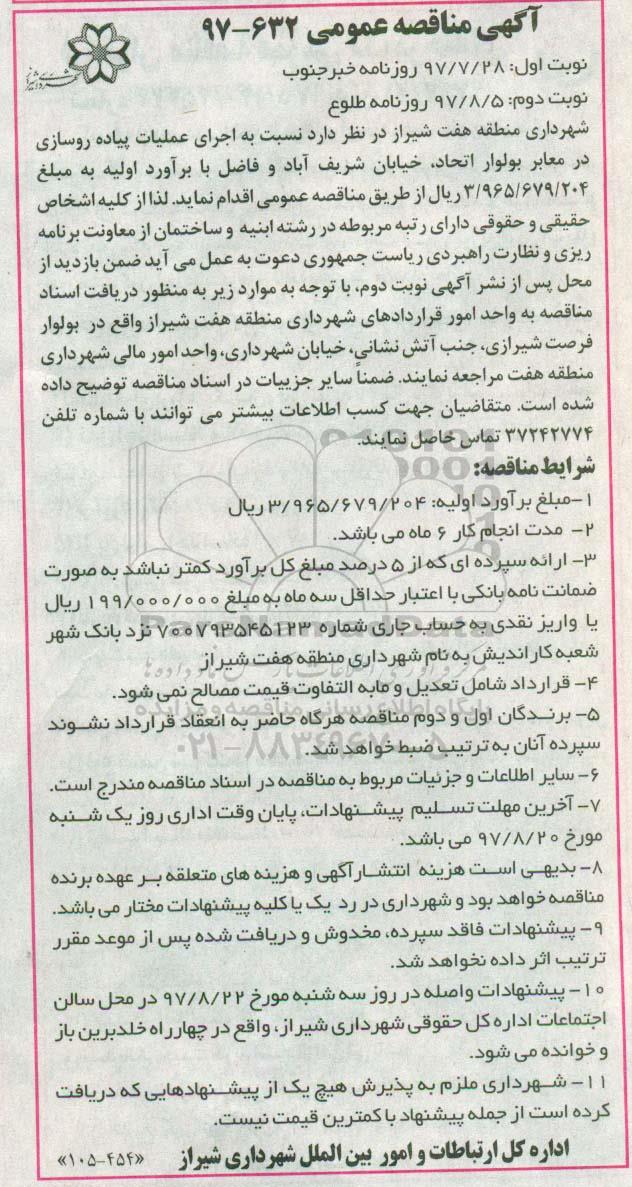 آگهی مناقصه عمومی ۶۳۲-۹۷
نوبت اول: ۹۷/۷/۲۸ روزنامه خبرجنوب
نوبت دوم: ۹۷/۸/۵ روزنامه طلوع
شهرداری منطقه هفت شیراز در نظر دارد نسبت به اجرای عملیات پیاده روسازی
در معابر بولوار اتحاد، خیابان شریف آباد و فاضل با برآورد اولیه به مبلغ
۳/۹۶۵/۶۷۹/۲۰۴ ریال از طریق مناقصه عمومی اقدام نماید. لذا از کلیه اشخاص
حقیقی و حقوقی دارای رتبه مربوطه در رشته ابنیه و ساختمان از معاونت برنامه
ریزی و نظارت راهبردی ریاست جمهوری دعوت به عمل می آید ضمن بازدید از
محل پس از نشر آگهی نوبت دوم، با توجه به موارد زیر به منظور دریافت اسناد
مناقصه به واحد امور قراردادهای شهرداری منطقه هفت شیراز واقع در بولوار
فرصت شیرازی، جنب آتش نشانی، خیابان شهرداری، واحد امور مالی شهرداری
منطقه هفت مراجعه نمایند. ضمناً سایر جزییات در اسناد مناقصه توضیح داده
شده است. متقاضیان جهت کسب اطلاعات بیشتر می توانند با شماره تلفن
۳۷۲۴۲۷۷۴ تماس حاصل نمایند.
شرایط مناقصه:
۱-مبلغ برآورد اولیه: ۳/۹۶۵/۶۷۹/۲۰۴ ریال
۲- مدت انجام کار ۶ ماه می باشد.
۳- ارائه سپرده ای که از ۵ درصد مبلغ کل برآورد کمتر نباشد به صورت
ضمانت نامه بانکی با اعتبار حداقل سه ماه به مبلغ ۱۹۹/۰۰۰/۰۰۰ ریال
یا واریز نقدی به حساب جاری شماره ۷۰۰۷۹۳۵۴۵۱۲۳ نزد بانک شهر
شعبه کاراندیش به نام شهرداری منطقه هفت شیراز
۴- قرارداد شامل تعدیل و مابه التفاوت قیمت مصالح نمی شود.
۵- برندگان اول و دوم مناقصه هرگاه حاضر به انعقاد قرارداد نشوند
سپرده آنان به ترتیب ضبط خواهد شد.
۶- سایر اطلاعات و جزئیات مربوط به مناقصه در اسناد مناقصه مندرج است.
۷- آخرین مهلت تسلیم پیشنهادات، پایان وقت اداری روز یک شنبه
مورخ ۹۷/۸/۲۰ می باشد.
۸- بدیهی است هزینه انتشارآگهی و هزینه های متعلقه بر عهده برنده
مناقصه خواهد بود و شهرداری در رد یک یا کلیه پیشنهادات مختار می باشد.
۹- پیشنهادات فاقد سپرده، مخدوش و دریافت شده پس از موعد مقرر
ترتیب اثر داده نخواهد شد.
۱۰- پیشنهادات واصله در روز سه شنبه مورخ ۹۷/۸/۲۲ در محل سالن
اجتماعات اداره کل حقوقی شهرداری شیراز، واقع در چهارراه خلدبرین باز
و خوانده می شود.
۱۱- شهرداری ملزم به پذیرش هیچ یک از پیشنهادهایی که دریافت
کرده است از جمله پیشنهاد با کمترین قیمت نیست.
اداره کل ارتباطات و امور بین الملل شهرداری شیراز «۱۰۵-۴۵۴»
ParsNamadData
پایگاه اطلاع رسانی مناقصه و مزایده
۰۲۱-۸۸۳۴۹۶۷۰-۵